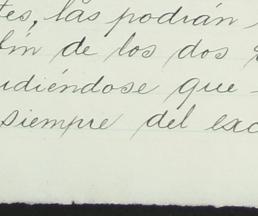 tes, las podrán
fin de los dos
udiéndose que
siempre del exc